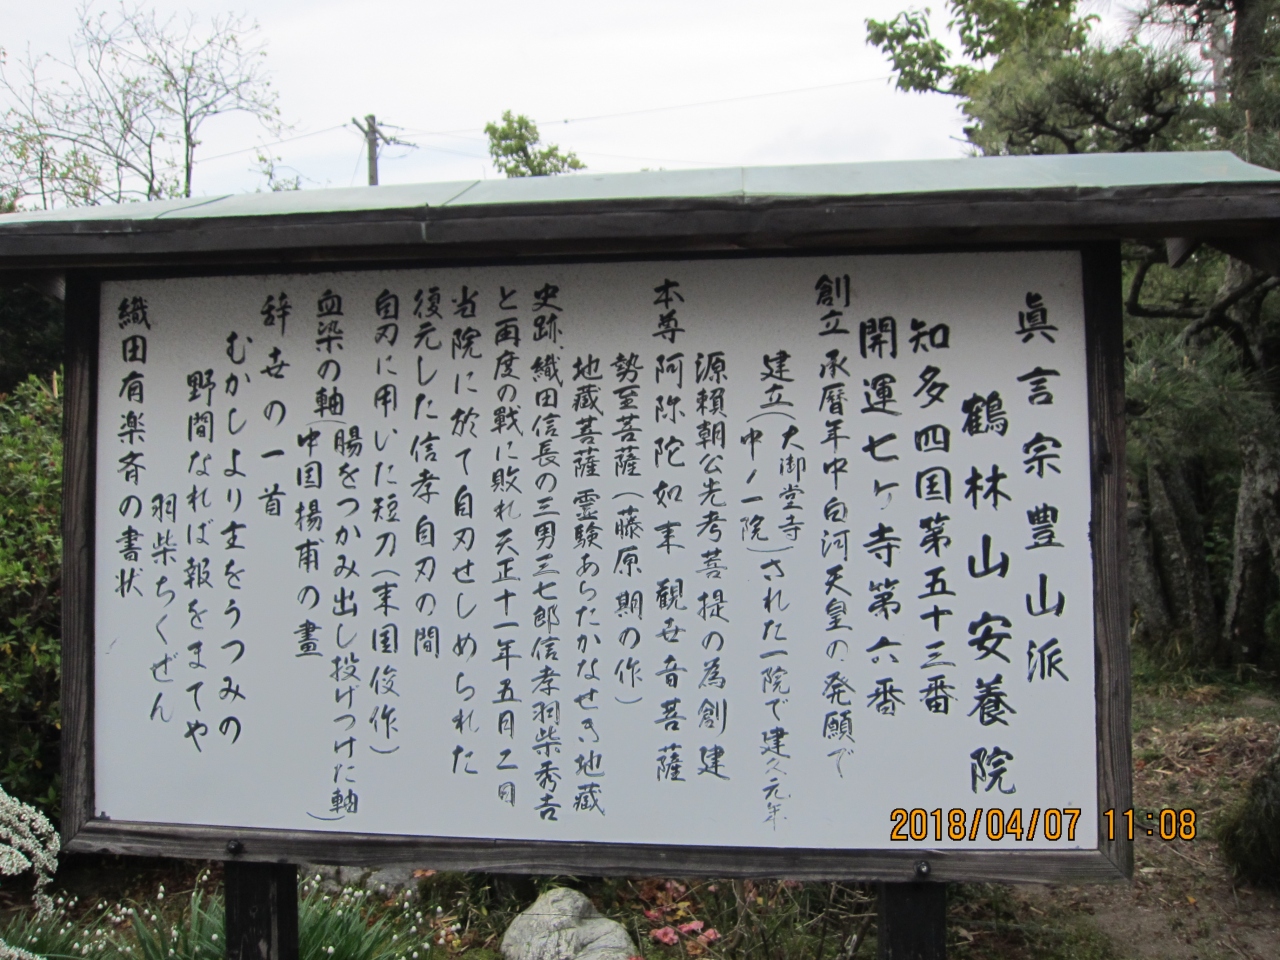 眞言宗豊山派
鶴林山安養院
知多四国第五十三番
開運七ヶ寺第六番
創立 承暦年中白河天皇の発願で
建立(大御堂寺
中ノ一院)された一院で建久元年
源頼朝公先考菩提の為創建
本尊 阿弥陀如来 観世音菩薩
勢至菩薩(藤原期の作)
地蔵菩薩霊験あらたかなせき地蔵
史跡 織田信長の三男三七郎信孝羽柴秀吉
と再度の戦に敗れ天正十一年五月二日
当院に於て自刃せしめられた
復元した信孝自刃の間
自刃に用いた短刀(来国俊作)
血染の軸(腸をつかみ出し投げつけた軸)
中国揚甫の畫
辞世の一首
むかしより主をうつみの
野間なれば報をまてや
羽柴ちくぜん
織田有楽斉の書状
2018/04/07 11:08